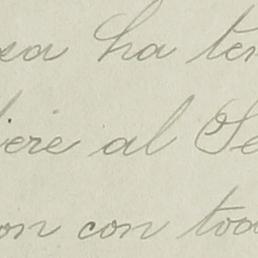 sa ha ten
iere al Se
on con tod